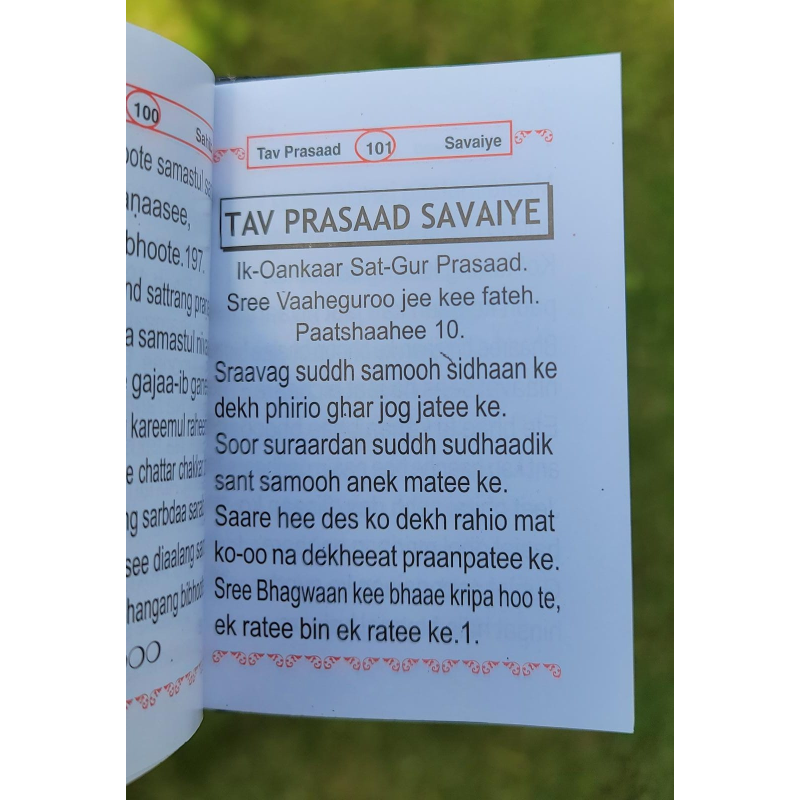 100
samastul
bhoote.197.
sattrang
samastul
gajaa-ib
kareemul
chattar chakkar
sarbdaa
diaalang
Tav Prasaad 101 Savaiye
TAV PRASAAD SAVAIYE
Ik-Oankaar Sat-Gur Prasaad.
Sree Vaaheguroo jee kee fateh.
Paatshaahee 10.
Sraavag suddh samooh sidhaan ke
dekh phirio ghar jog jatee ke.
Soor suraardan suddh sudhaadik
sant samooh anek matee ke.
Saare hee des ko dekh rahio mat
ko-oo na dekheeat praanpatee ke.
Sree Bhagwaan kee bhaae kripa hoo te,
ek ratee bin ek ratee ke.1.